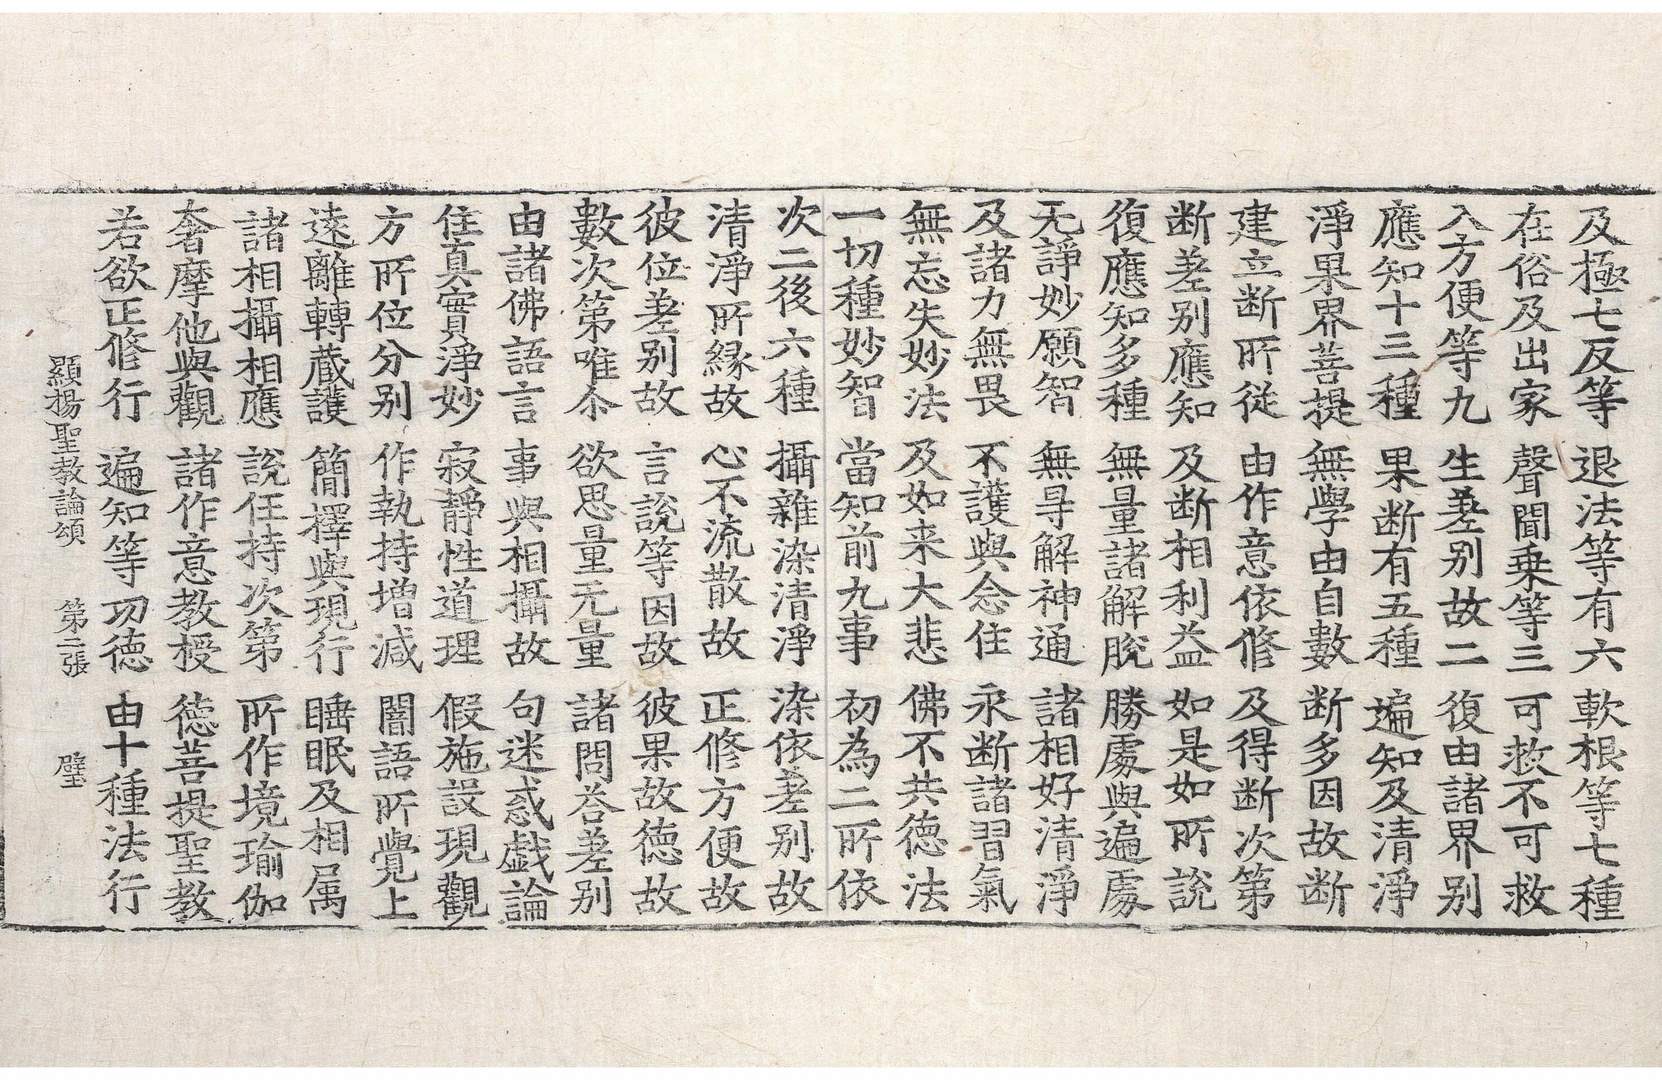 及極七反等 退法等有六 軟根等七種
在俗及出家 聲聞乗等三 可救不可救
入方便等九 生差别故二 復由諸界别
應知十三種 果断有五種 遍知及清淨
淨果界菩提 無學由自數 断多因故断
建立断所從 由作意依修 及得断次第
断差别應知 及断相利益 如是如所說
復應知多種 無量諸解脫 勝處與遍處
无諍妙願智 無㝵解神通 諸相好清淨
及諸力無畏 不護與念住 永断諸習氣
無忘失妙法 及如来大悲 佛不共德法
一切種妙智 當知前九事 初為二所依
次二後六種 攝雜染清淨 染依差别故
清淨所縁故 心不流散故 正修方便故
彼位差别故 言說等因故 彼果故德故
數次第唯尒 欲思量无量 諸問荅差别
由諸佛語言 事與相攝故 句迷惑戯論
住真實淨妙 寂靜性道理 假施設現觀
方所位分别 作執持増減 闇語所覺上
遠離轉蔵護 簡擇與現行 睡眠及相属
諸相攝相應 說任持次第 所作境瑜伽
奢摩他與觀 諸作意教授 德菩提聖教
若欲正修行 遍知等功德 由十種法行
顯揚聖教論頌 第二張 璧